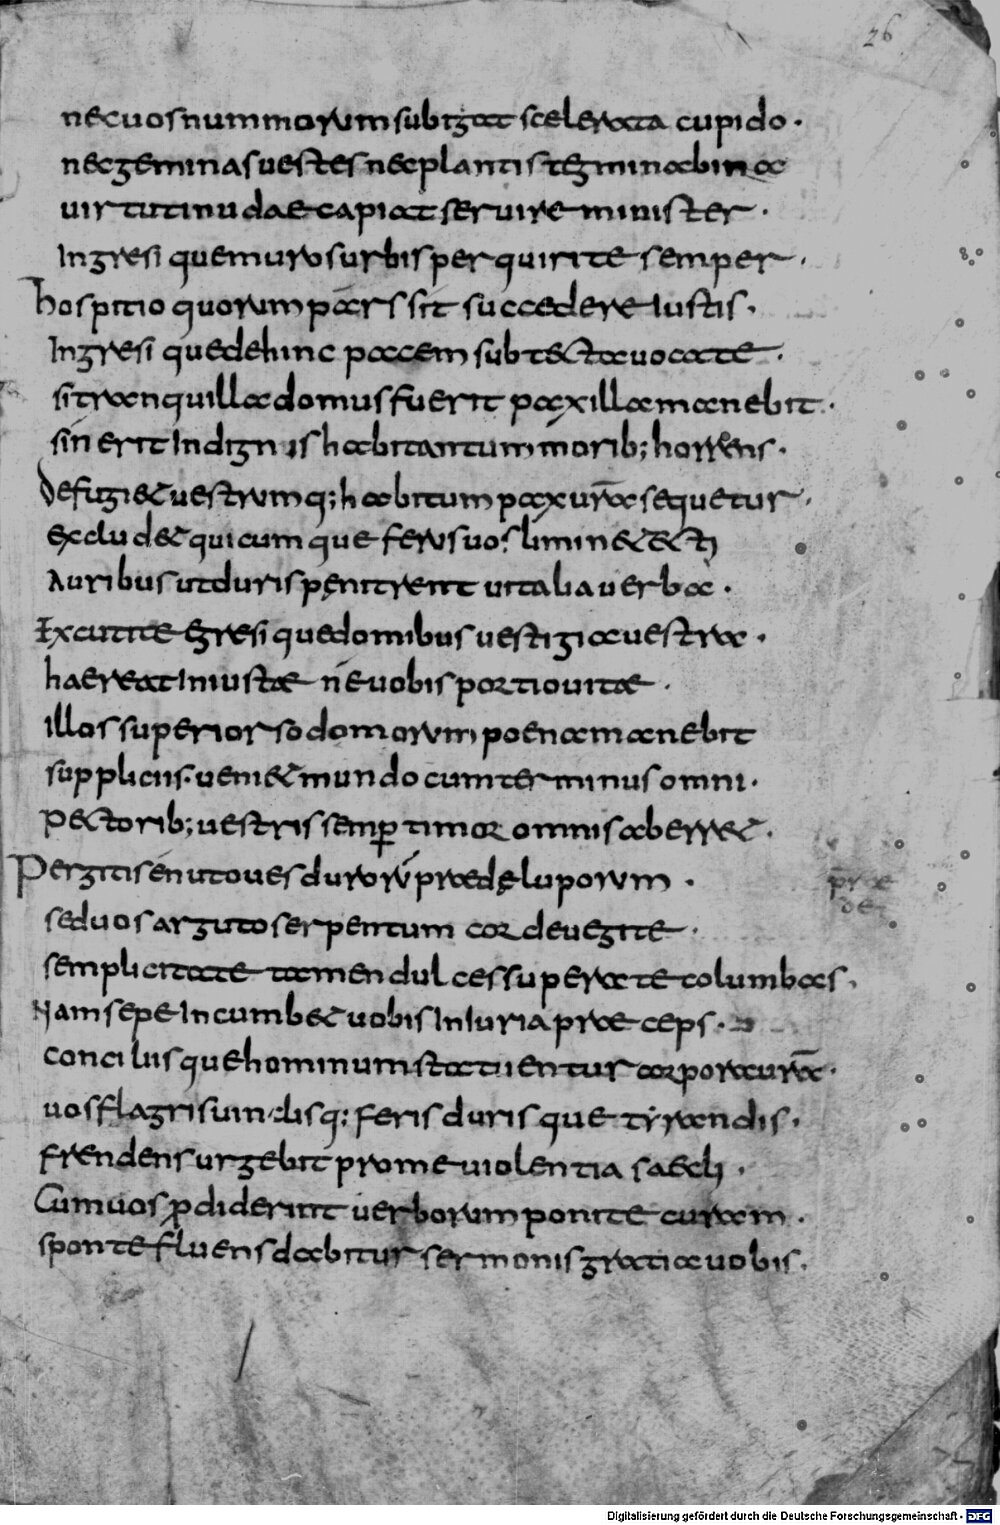 26
nec uos nummorum subigat scelerata cupido.
nec geminas uestes nec plantis tegmina bina
uirtuti nudae capiat seruire minister.
Ingresi que muros urbis perquirite semper.
hospitio quorum pars sit succedere Iustis.
Ingresi que dehinc pacem sub tecta uocate.
si tranquilla domus fuerit pax illa manebit.
sin erit Indignis habitantum morib; horrens.
Defugiet uestrumq; habitum pax ur̄a sequetur.
excludet quicumque feros uos limine tecti
Auribus ut duris penitrent uitalia uerba.
Excutite egresique domibus uestigia uestra.
haereat Iniustae ne uobis portio uitae.
illos superior sodomorum poena manebit
suppliciis. ueniet mundo cum terminus omni.
Pectorib; uestris semp timor omnis aberret.
Pergitis en ut oues durorū praedę luporum.
sed uos arguto serpentum cor deuegite.
semplicitate tamen dulces superate columbas.
Nam sepe Incumbet uobis Iniuria praeceps.
conciliisque hominum statuentur corpora ur̄a.
uos flagris uinclisq; feris durisque tyrandis.
frendens urgebit pro me uiolentia saecli.
Cum uos prodiderint uerborum ponite curam.
sponte fluens dabitur sermonis gratia uobis.
prae
de
Digitalisierung gefördert durch die Deutsche Forschungsgemeinschaft - DFG